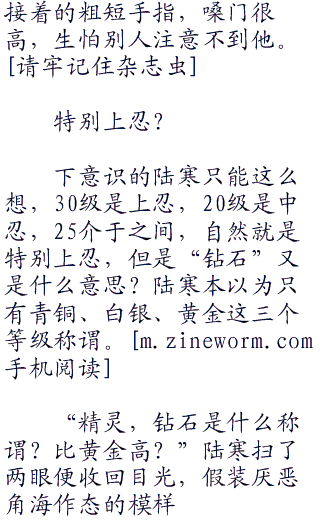 接着的粗短手指，嗓门很
高，生怕别人注意不到他。
[请牢记住杂志虫]
特别上忍？
下意识的陆寒只能这么
想，30级是上忍，20级是中
忍，25介于之间，自然就是
特别上忍，但是“钻石”又
是什么意思？陆寒本以为只
有青铜、白银、黄金这三个
等级称谓。[m.zineworm.com
手机阅读]
“精灵，钻石是什么称
谓？比黄金高？”陆寒扫了
两眼便收回目光，假装厌恶
角海作态的模样